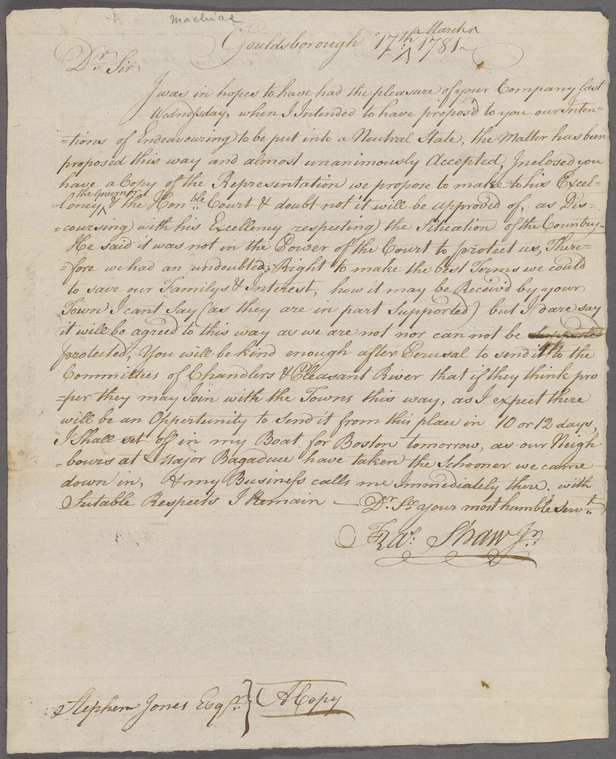 Machias
Gouldsborough 17th March 1781
Dr. Sir
I was in hopes to have had the pleasure of your Company last
Wednesday, when I Intended to have propos'd to you our Inten-
=tions of Endeavouring to be put into a Neutral State, the Matter has been
proposed this way and almost unanimously Accepted, Inclosed you
have a Copy of the Representation we propose to make to his Excel-
=lency the Governor & the Honble. Court & doubt not it will be approved of, as Dis-
=coursing with his Excellency respecting the Situation of the Country
He said it was not in the Power of the Court to protect us, There-
=fore we had an undoubted Right to make the best Terms we could
to save our Familys & Interest, how it may be Receiv'd by your
Town I cant Say (as they are in part Supported) but I dare say
it will be agreed to this way as we are not nor can not be
protected, You will be kind enough after Perusal to send it to the
Committees of Chandlers & Pleasant River that if they think pro
=per they may Join with the Towns this way, as I expect there
will be an Opportunity to Send it from this place in 10 or 12 days,
I Shall set off in my Boat for Boston tomorrow, as our Neigh
=bours at Major Bagaduce have taken the Schooner we came
down in, & my Business calls me Immediately there. with
Sutable Respects I Remain — Dr. Sr. your most humble Servt.
Frs. Shaw Jr.
Stephen Jones Esqr. } A Copy